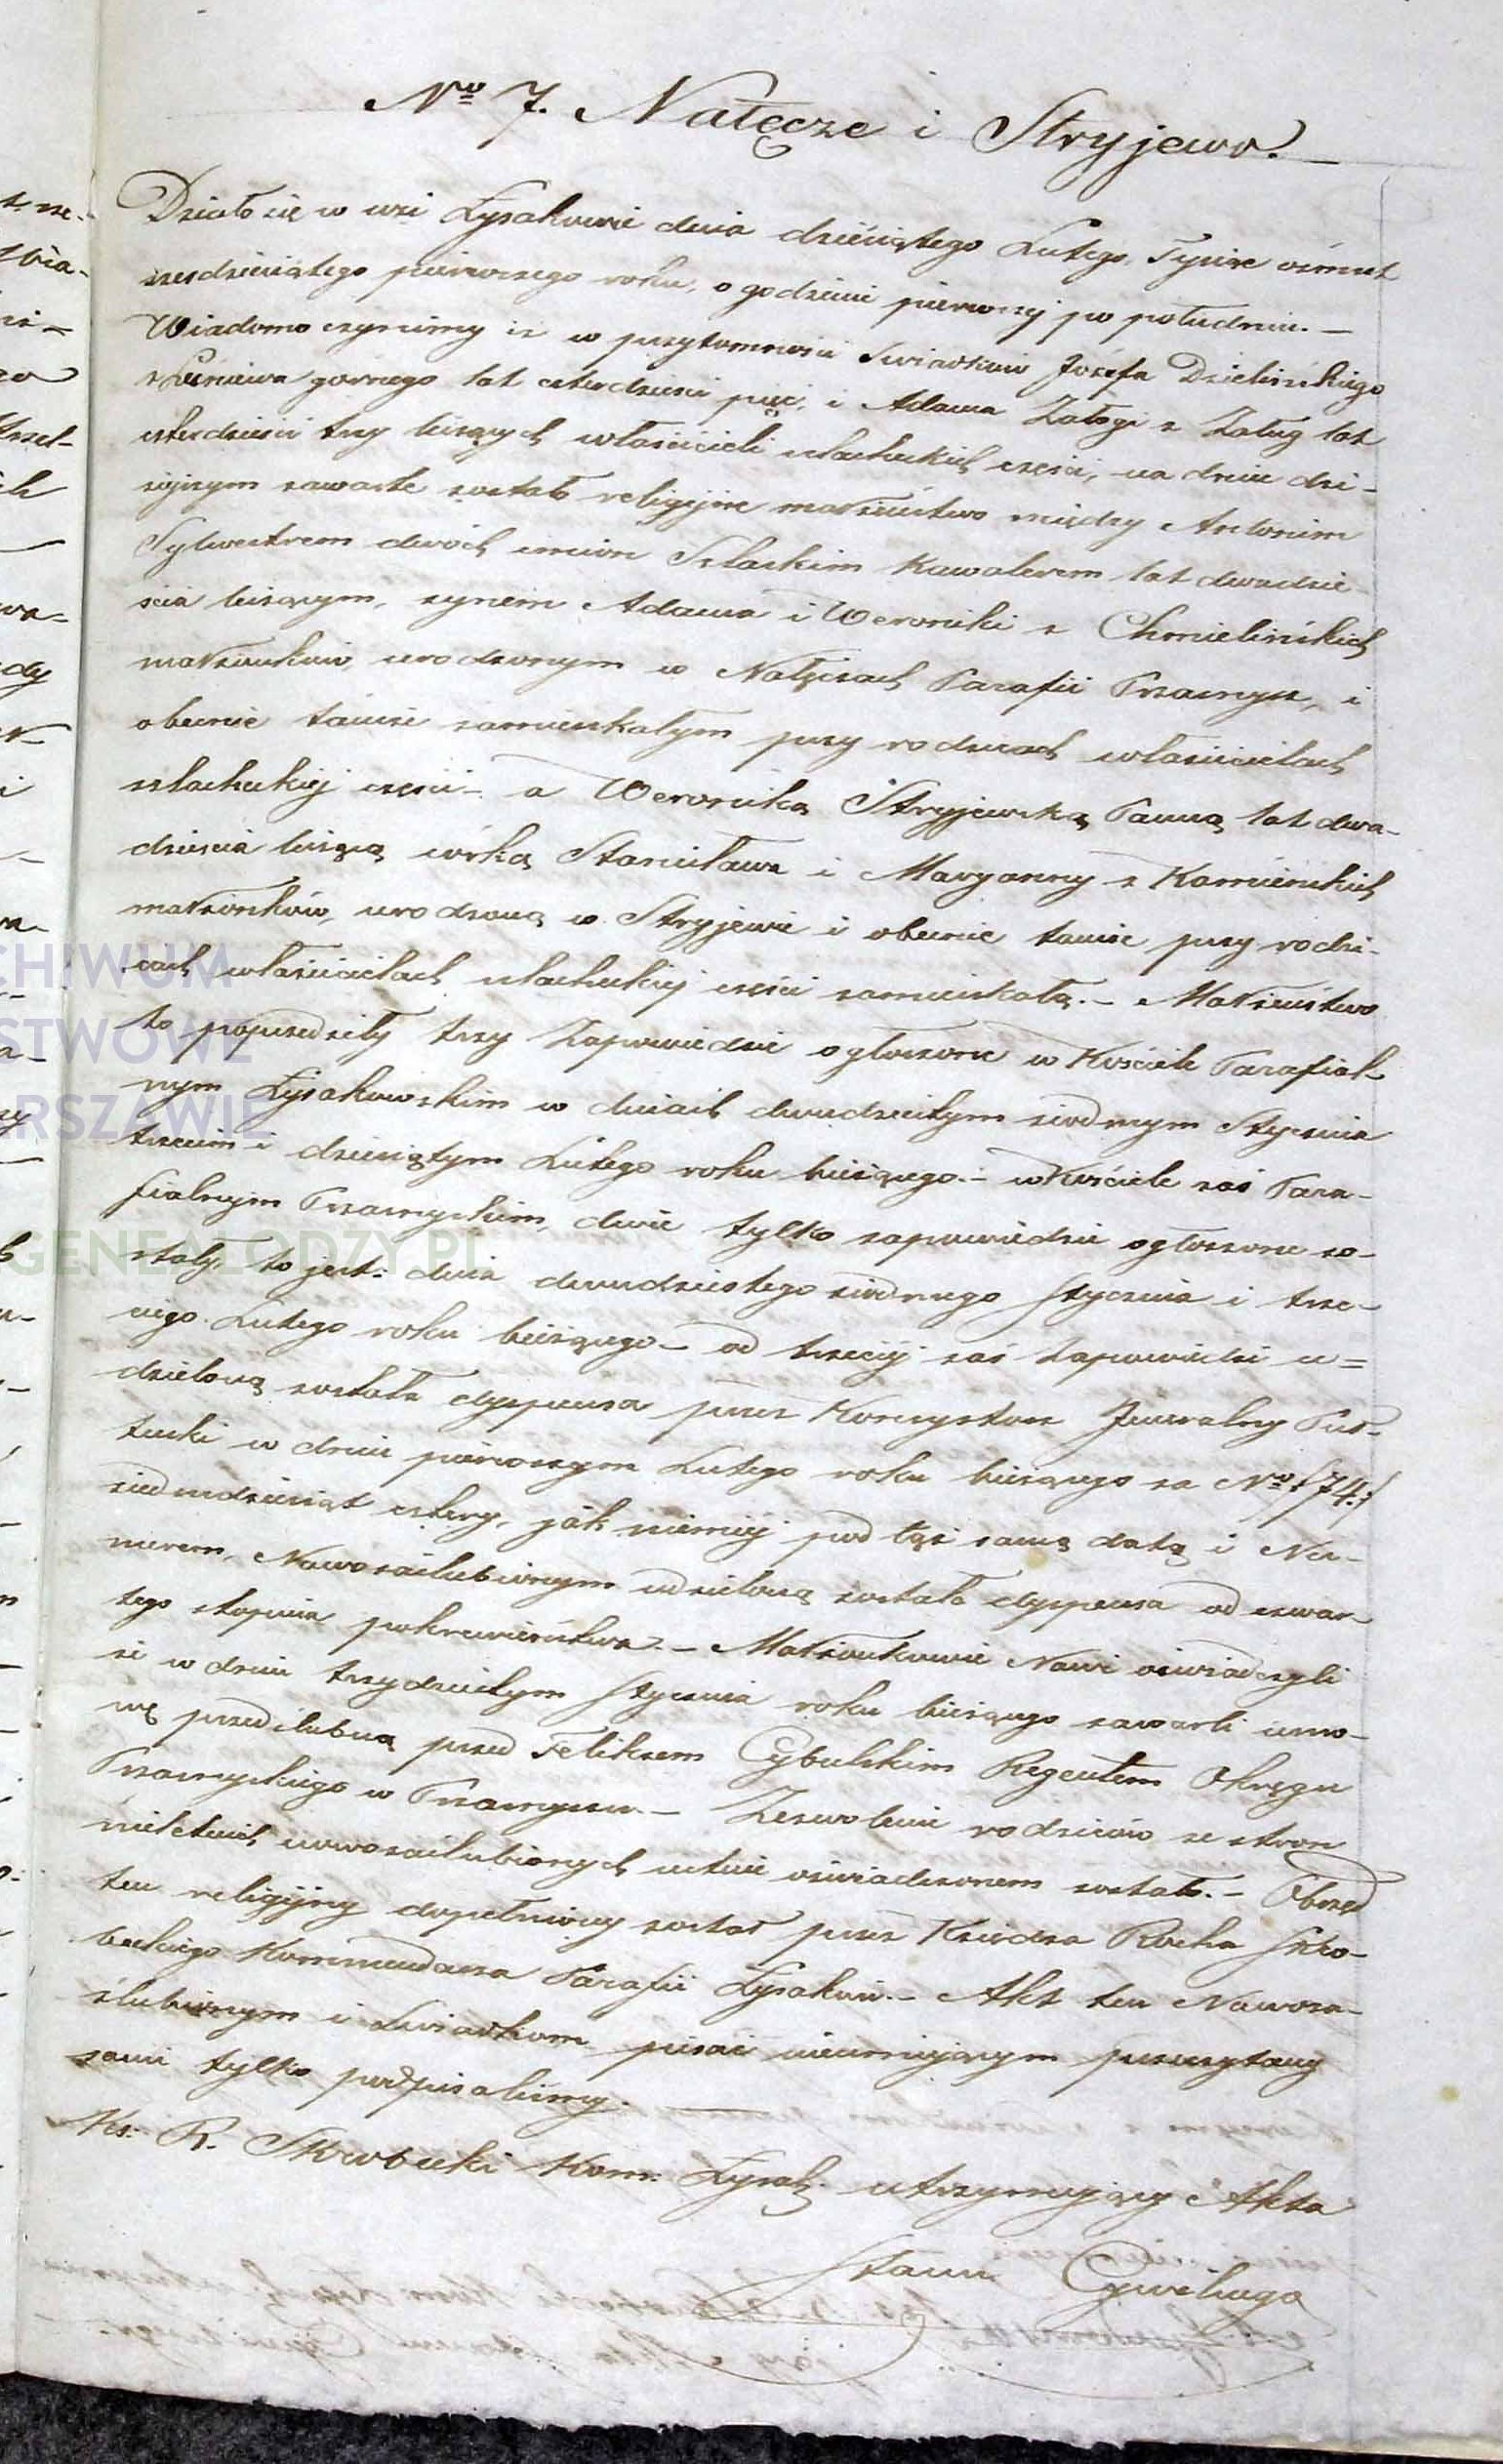 No 7. Nałęcze i Stryjewo.
Działo się w wsi Łysakowie dnia dziesiątego Lutego, Tysiąc ośmset
szesdziesiątego pierwszego roku, o godzinie pierwszej po południu. —
Wiadomo czynimy iż w przytomności Swiadków Józefa Dzielińskiego
z górnego lat czterdzieści pięć, i Adama Załogi z Załug lat
czterdzieści trzy liczących właścicieli szlacheckich części, na dniu dzi-
siejszym zawarte zostało religijne małżeństwo między Antonim
Sylwestrem dwóch imion Szlaskim Kawalerem lat dwadzie-
ścia liczącym, synem Adama i Weroniki z Chmielińskich
małżonków, urodzonym w Nałęczach Parafii Przasnysz, i
obecnie tamże zamieszkałym przy rodzicach właścicielach
szlacheckiej części – a Weroniką Stryjewską Panną lat dwa-
dzieścia liczącą córką Stanisława i Maryanny z Kamieńskich
małżonków, urodzoną w Stryjewie i obecnie tamże przy rodzi-
cach właścicielach szlacheckiej części zamieszkałą. – Małżeństwo
to poprzedziły trzy Zapowiedzie ogłoszone w Kościele Parafial-
nym Łysakowskim w dniach dwudziestym siódmym Stycznia
trzecim i dziesiątym Lutego roku bieżącego. – w Kościele zaś Para-
fialnym Przasnyskim, dwie tylko zapowiedzie ogłoszone zo-
stały, to jest: dnia dwudziestego siódmego Stycznia i trze-
ciego Lutego roku bieżącego – od trzeciej zaś Zapowiedzi u=
dzieloną została dyspensa przez Konsystorz Jeneralny Puł-
tuski w dniu pierwszym Lutego roku bieżącego za No /:74:/
siedmdziesiąt cztery, jak niemniej pod tąż samą datą i Nu-
merem, Nowozaślubionym udzieloną została dyspensa od czwar-
tego stopnia pokrewieństwa. – Małżonkowie Nowi oświadczyli
iż w dniu trzydziestym Stycznia roku bieżącego zawarli umo-
wę przedślubną przed Feliksem Cybulskim Regentem Okręgu
Przasnyskiego w Przasnyszu. – Zezwolenie rodziców ze stron
nieletnich nowozaślubionych ustnie oświadczonem zostało. – Obrzęd
ten religijny dopełniony został przez Księdza Rocha Skro-
beckiego Kommendarza Parafii Łysaków. – Akt ten Nowoza-
ślubionym i Świadkom pisać nieumiejącym przeczytany
sami tylko podpisaliśmy.
Ks: R. Skrobecki Kom: Łysak: utrzymujący Akta
Stanu Cywilnego